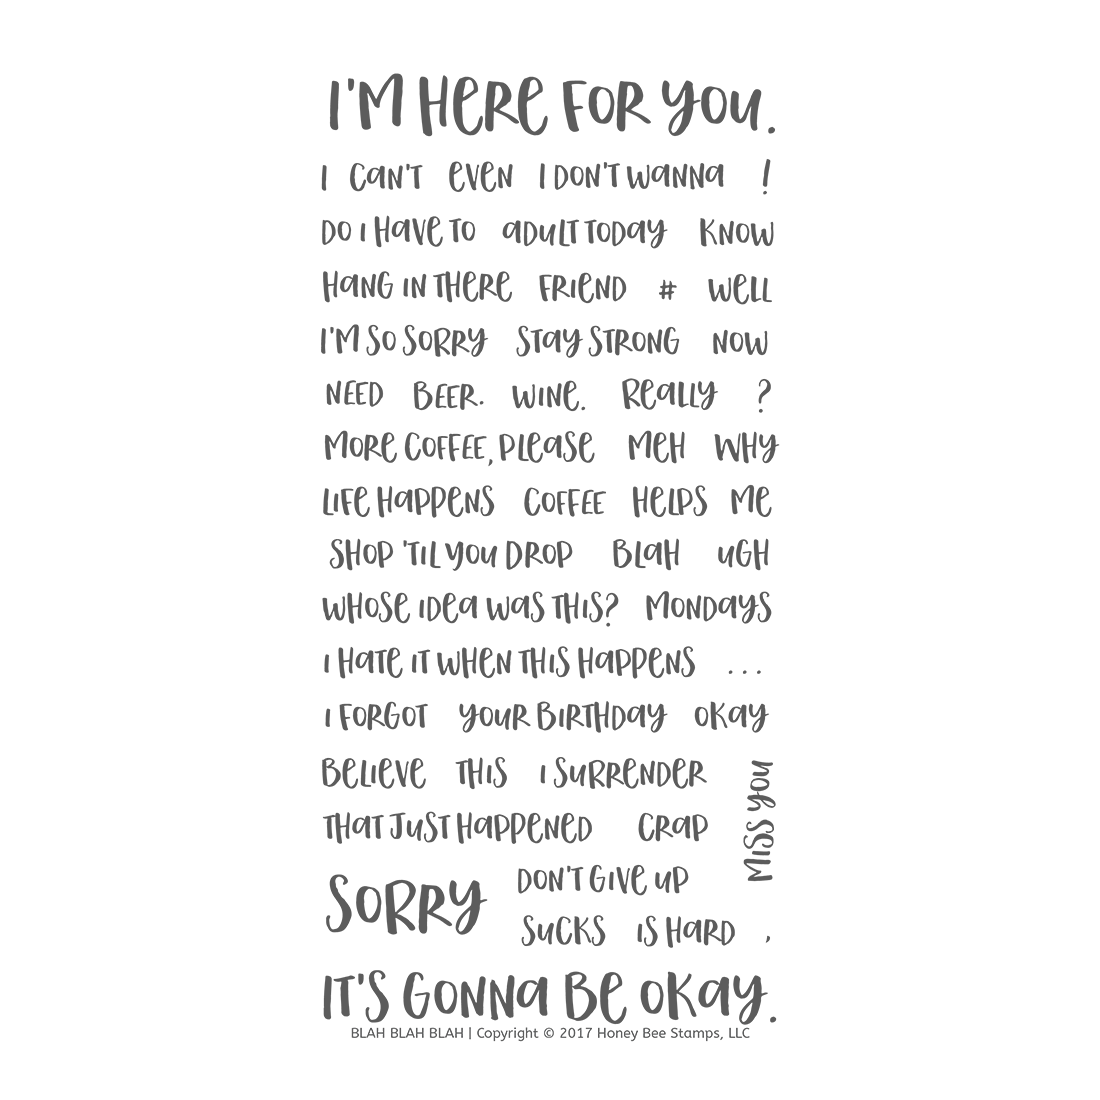 I'M HERE FOR YOU.
I CAN'T EVEN I DON'T WANNA !
DO I HAVE TO ADULT TODAY KNOW
HANG IN THERE FRIEND # WELL
I'M SO SORRY STAY STRONG NOW
NEED BEER. WINE. REALLY ?
MORE COFFEE, PLEASE MEH WHY
LIFE HAPPENS COFFEE HELPS ME
SHOP 'TIL YOU DROP BLAH UGH
WHOSE IDEA WAS THIS? MONDAYS
I HATE IT WHEN THIS HAPPENS ...
I FORGOT YOUR BIRTHDAY OKAY
BELIEVE THIS I SURRENDER
MISS YOU
THAT JUST HAPPENED CRAP
SORRY
DON'T GIVE UP
SUCKS IS HARD ,
IT'S GONNA BE OKAY.
BLAH BLAH BLAH | Copyright © 2017 Honey Bee Stamps, LLC